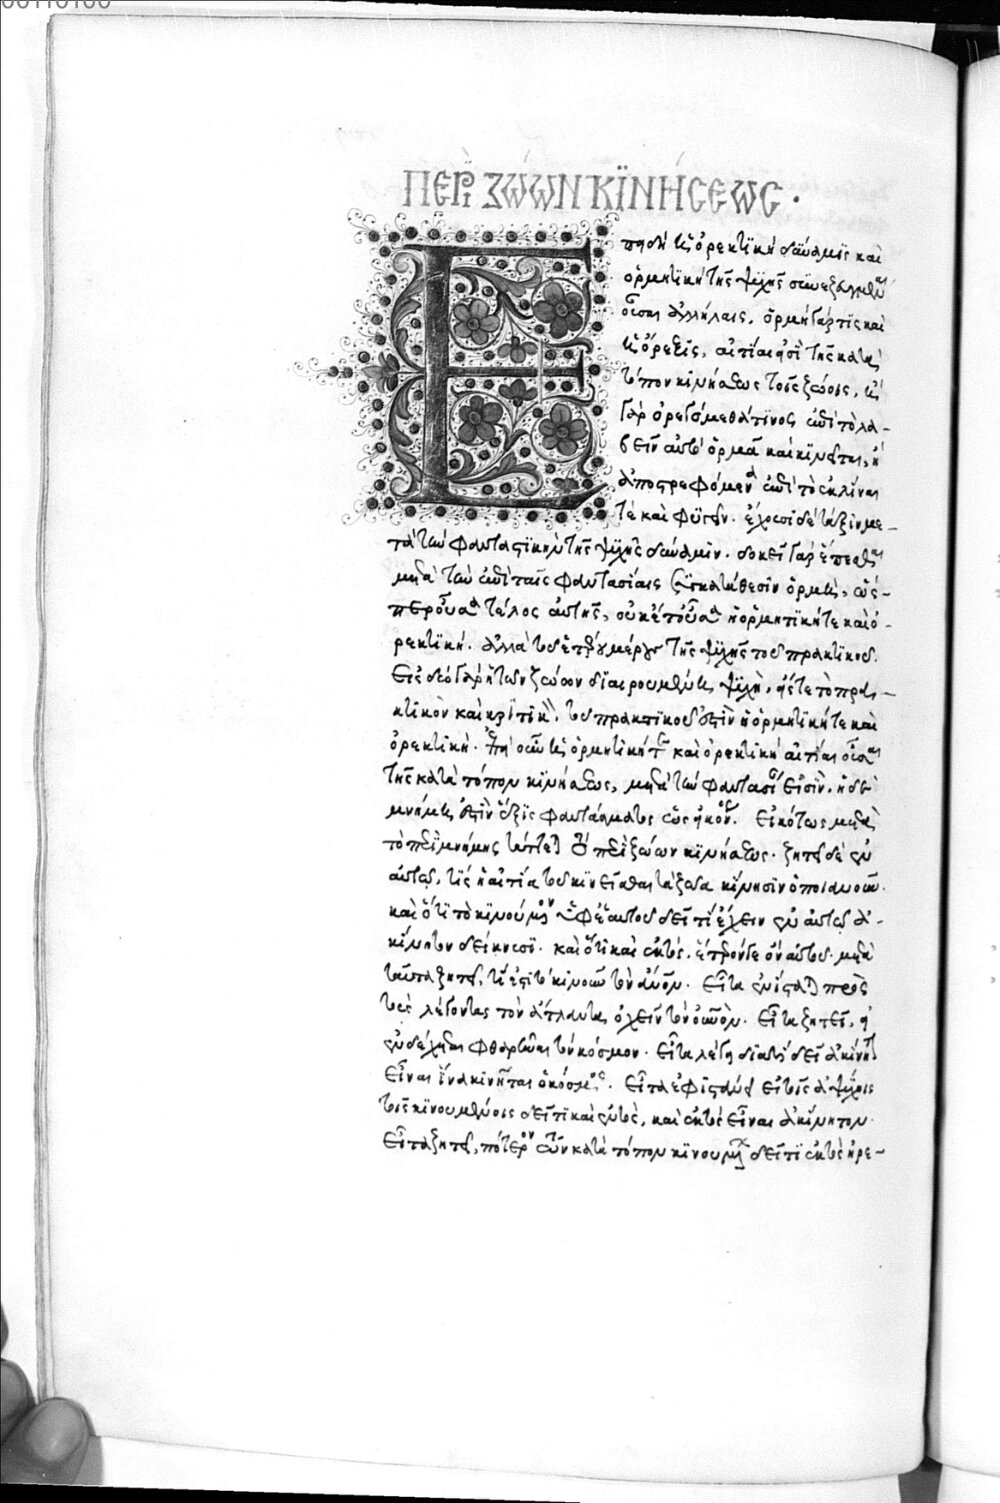 00110100
ΠΕΡῚ ΖΏΩΝ ΚΪΝΉΣΕΩΣ ·
Ε
πειδὴ ἡ ὀρεκτικὴ δύναμις καὶ
ὁρμητικὴ τῆς ψυχῆς
οὖσαι ἀλλήλαις, ὁρμὴ γάρ τις καὶ
ἡ ὄρεξις, αἰτίαι εἰσὶ τῆς κατὰ
τόπον κινήσεως τοῖς ζώοις, εἰ
γὰρ ὀρεγόμεθά τινος ἐπὶ τὸ λα-
βεῖν αὐτὸ ὁρμᾶ καὶ κινεῖται, ἢ
ἀποστρεφόμενα ἐπὶ τὸ ἐκκλῖναι
τὲ καὶ φυγεῖν. ἔχουσι δὲ τάξιν με-
τὰ τὴν φανταστικὴν τῆς ψυχῆς δύναμιν. δοκεῖ γὰρ ἕπεσθαι
μετὰ τὴν ἐπὶ ταῖς φαντασίαις συγκατάθεσιν ὁρμή, ὡς
τέλος αὐτῆς, οὐκέτ' οὖσα ἡ ὁρμητική τε καὶ ὀ-
ρεκτική. ἀλλὰ τοῦ ἑτέρου μέρους τῆς ψυχῆς τοῦ πρακτικοῦ.
Εἰς δύο γὰρ ἡ τῶν ζώων διαιρουμένη ψυχὴ, εἴς τε τὸ πρα-
κτικὸν καὶ κριτικόν, τοῦ πρακτικοῦ ἐστὶν ἡ ὁρμητική τε καὶ
ὀρεκτική. ἐπεὶ οὖν ἡ ὁρμητική τε καὶ ὀρεκτικὴ αἰτίαι οὖσαι
τῆς κατὰ τόπον κινήσεως, μετὰ τὴν φαντασίαν εἰσὶν. ἡ δὲ
μνήμη ἐστὶν ἕξις φαντάσματος ὡς εἰκόνος. Εἰκότως μετὰ
τὸ περὶ μνήμης τάττει τὸ περὶ ζώων κινήσεως. ζητεῖ δὲ ἐν
αὐτῷ, τίς ἡ αἰτία τοῦ κινεῖσθαι τὰ ζῶα κίνησιν ὁποιανοῦν.
καὶ ὅτι τὸ κινούμενον ἐφ' ἑαυτοῦ δεῖ τι ἔχειν ἐν αὐτῷ ἀ-
κίνητον δείκνυσι. καὶ ὅτι καὶ ἐκτός, μετὰ
ταῦτα ζητεῖ, τί ἐστι τὸ κινοῦν τὸν οὐρανόν. Εἶτα ἐνίσταται πρὸς
τοὺς λέγοντας τὸν ἄτλαντα ὀχεῖν τὸν οὐρανόν. Εἶτα ζητεῖ, εἰ
ἐνδέχεται φθαρῆναι τὸν κόσμον. Εἶτα λέγει διατί δεῖ ἀκίνητον
εἶναι ἵνα κινῆται ὁ κόσμος. Εἶτα ἐφιστάνει εἰ τοῖς ἀψύχοις
τοῖς κινουμένοις δεῖ τι καὶ ἐντὸς, καὶ ἐκτὸς εἶναι ἀκίνητον.
Εἶτα ζητεῖ, πότερον οὖν κατὰ τόπον κινουμένων δεῖ τι ἐκτὸς ἠρε-